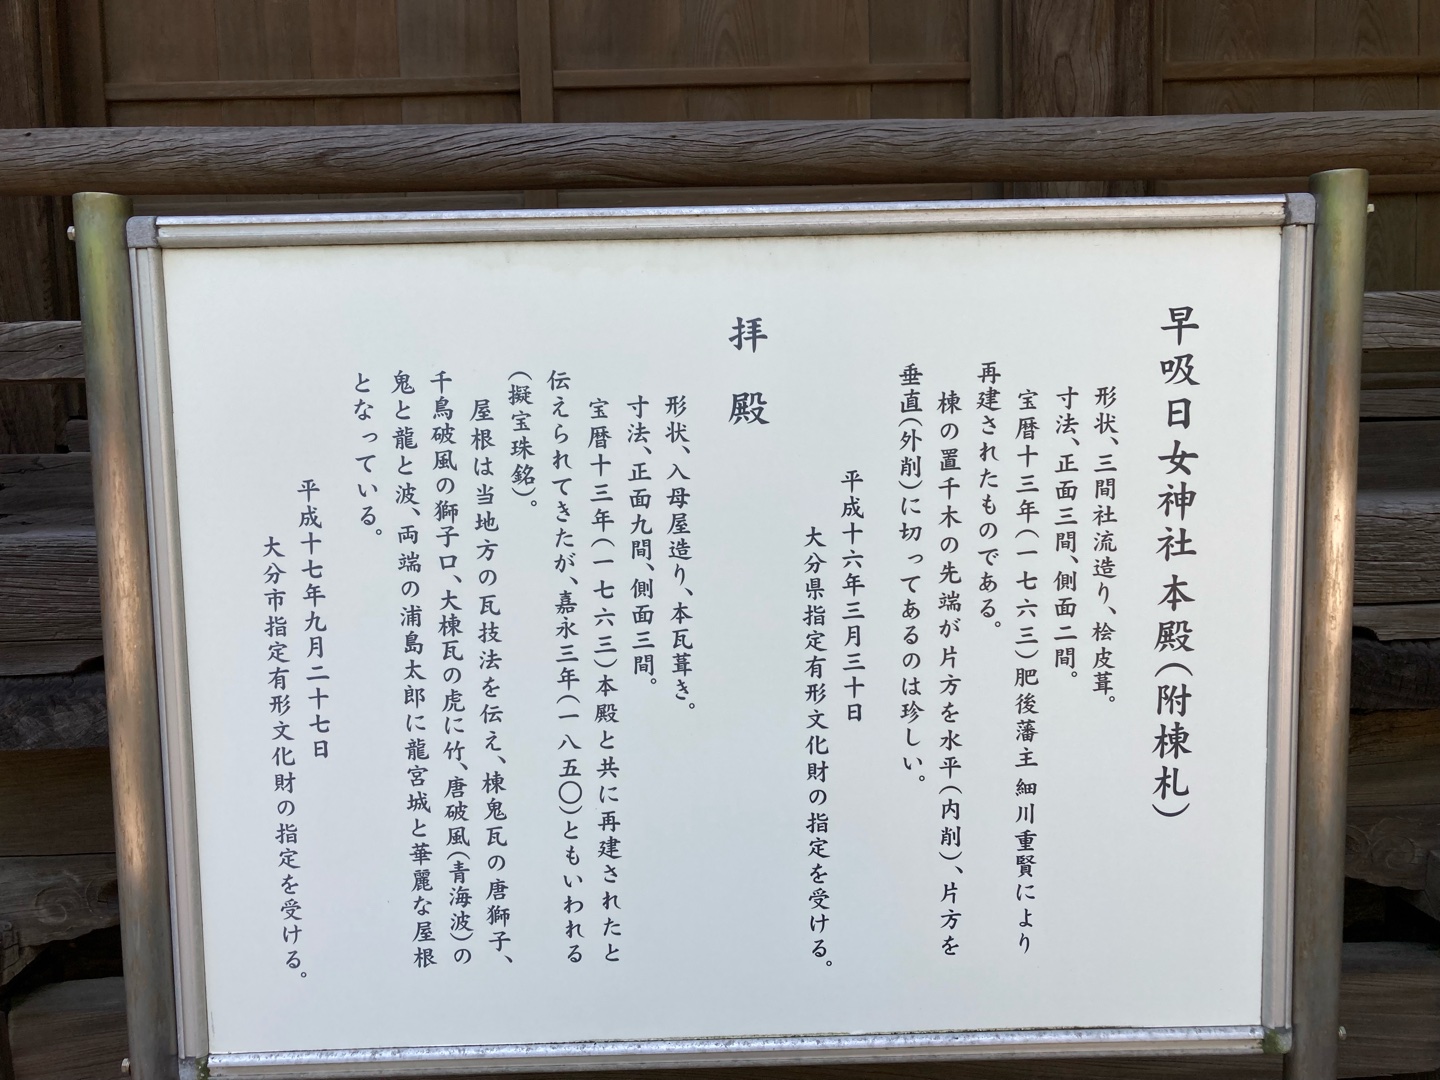 早吸日女神社本殿(附棟札)
形状、三間社流造り、桧皮葺。
寸法、正面三間、側面二間。
宝暦十三年(一七六三)肥後藩主 細川重賢により
再建されたものである。
棟の置千木の先端が片方を水平(内削)、片方を
垂直(外削)に切ってあるのは珍しい。
平成十六年三月三十日
大分県指定有形文化財の指定を受ける。
拝殿
形状、入母屋造り、本瓦葺き。
寸法、正面九間、側面三間。
宝暦十三年(一七六三)本殿と共に再建されたと
伝えられてきたが、嘉永三年(一八五〇)ともいわれる
(擬宝珠銘)。
屋根は当地方の瓦技法を伝え、棟鬼瓦の唐獅子、
千鳥破風の獅子口、大棟瓦の虎に竹、唐破風(青海波)の
鬼と龍と波、両端の浦島太郎に龍宮城と華麗な屋根
となっている。
平成十七年九月二十七日
大分市指定有形文化財の指定を受ける。